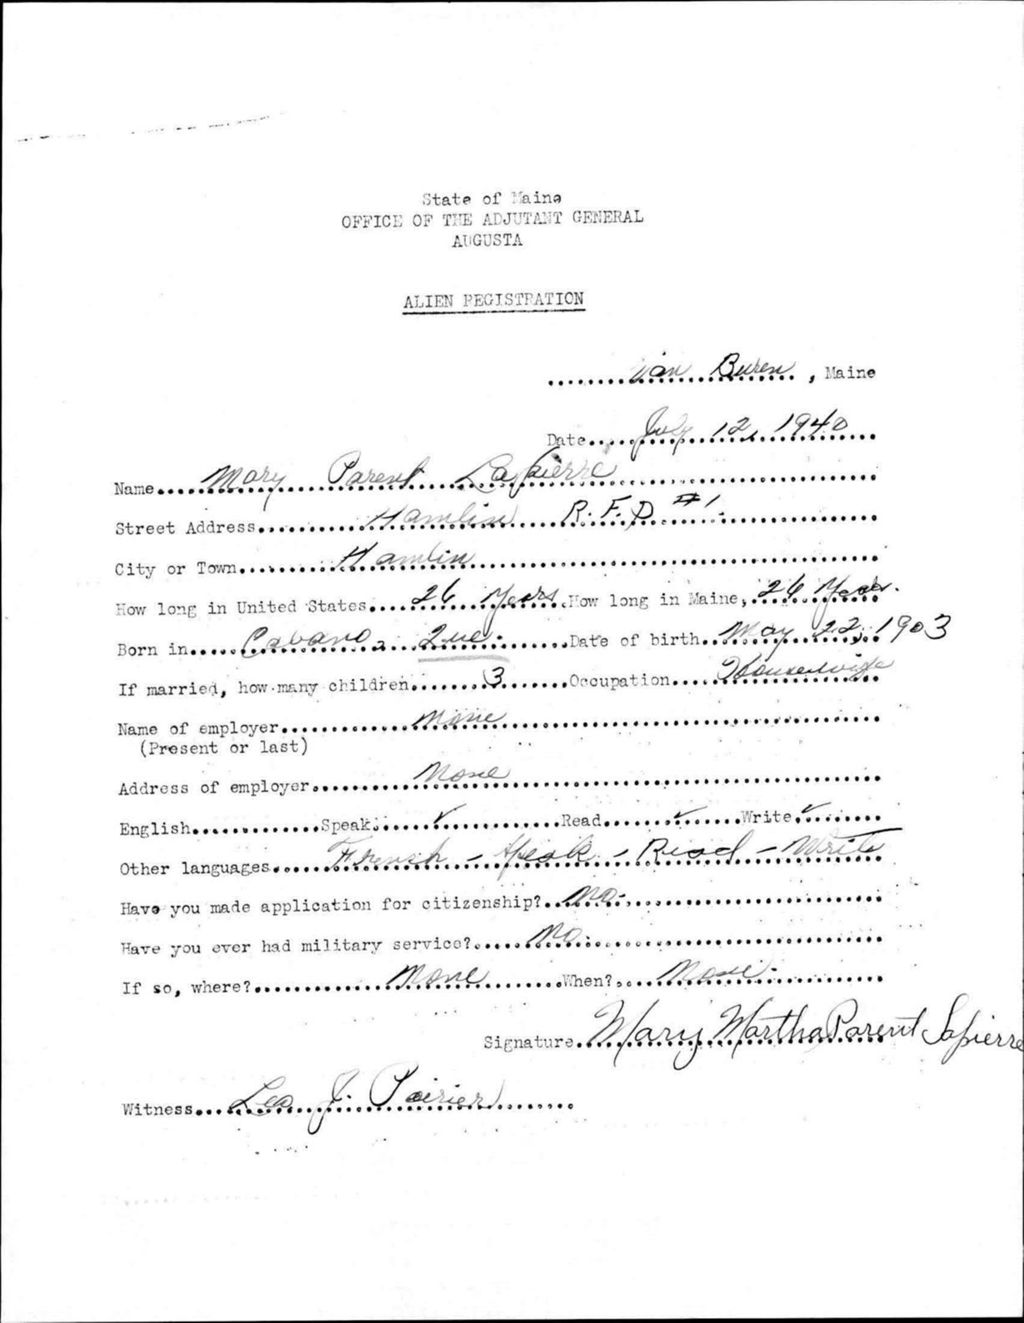 State of Maine
OFFICE OF THE ADJUTANT GENERAL
AUGUSTA
ALIEN REGISTRATION
Van Buren, Maine
Date July 12, 1940
Name Mary Parent Lapierre
Street Address Hamlin R.F.D #1.
City or Town Hamlin
How long in United States 26 Years How long in Maine, 26 Years.
Born in Cabano, Que. Date of birth May 22, 1903
If married, how many children 3 Occupation Housewife
Name of employer None
(Present or last)
Address of employer None
English Speak ✓ Read ✓ Write ✓
Other languages French - Speak - Read - Write
Have you made application for citizenship? No.
Have you ever had military service? No.
If so, where? None When? None.
Signature Mary Martha Parent Lapierre
Witness Leo J. Poirier